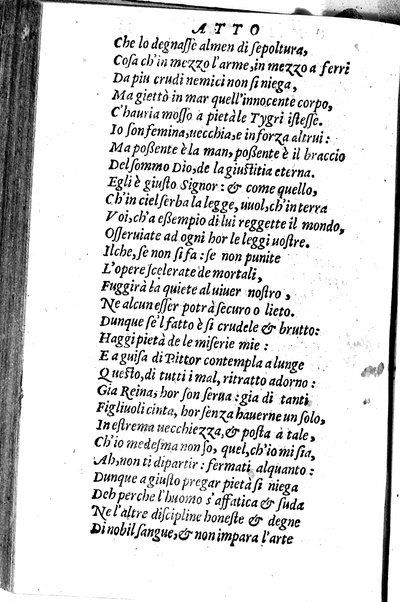 ATTO
Che lo degnasse almen di sepoltura,
Cosa ch'in mezzo l'arme, in mezzo a ferri
Da piu crudi nemici non si niega,
Ma giettò in mar quell'innocente corpo,
C'hauria mosso a pietà le Tygri istesse.
Io son femina, uecchia, e in forza altrui:
Ma possente è la man, possente è il braccio
Del sommo Dio, de la giustitia eterna.
Egli è giusto Signor: & come quello,
Ch'in ciel serba la legge, uuol, ch'in terra
Voi, ch'a essempio di lui reggette il mondo,
Osseruiate ad ogni hor le leggi uostre.
Ilche, se non si fa: se non punite
L'opere scelerate de mortali,
Fuggirà la quiete al uiuer nostro,
Ne alcun esser potrà securo o lieto.
Dunque se'l fatto è si crudele & brutto:
Haggi pietà de le miserie mie:
E a guisa di Pittor contempla a lunge
Questo, di tutti i mal, ritratto adorno:
Gia Reina, hor son serua: gia di tanti
Figliuoli cinta, hor senza hauerne un solo,
In estrema uecchiezza, & posta à tale,
Ch'io medesma non so, quel, ch'io mi sia,
Ah, non ti dipartir: fermati alquanto:
Dunque a giusto pregar pietà si niega
Deh perche l'huomo s'affatica & suda
Ne l'altre discipline honeste & degne
Di nobil sangue, & non impara l'arte